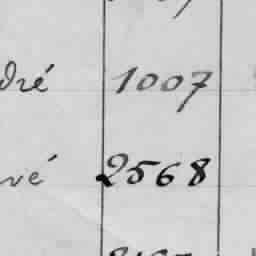 dré 1007
vé 2568